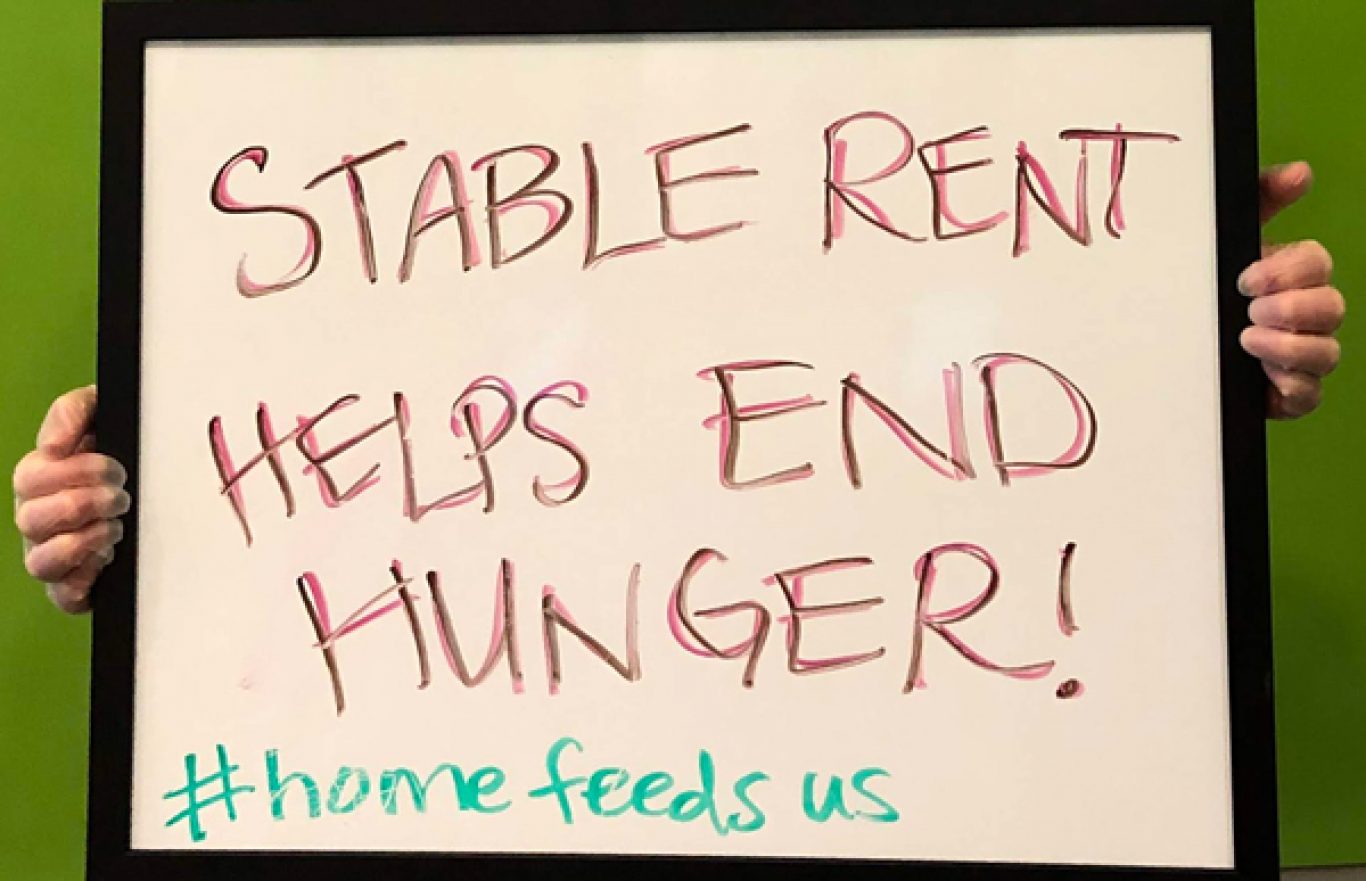 STABLE RENT
HELPS END
HUNGER!
#home feeds us